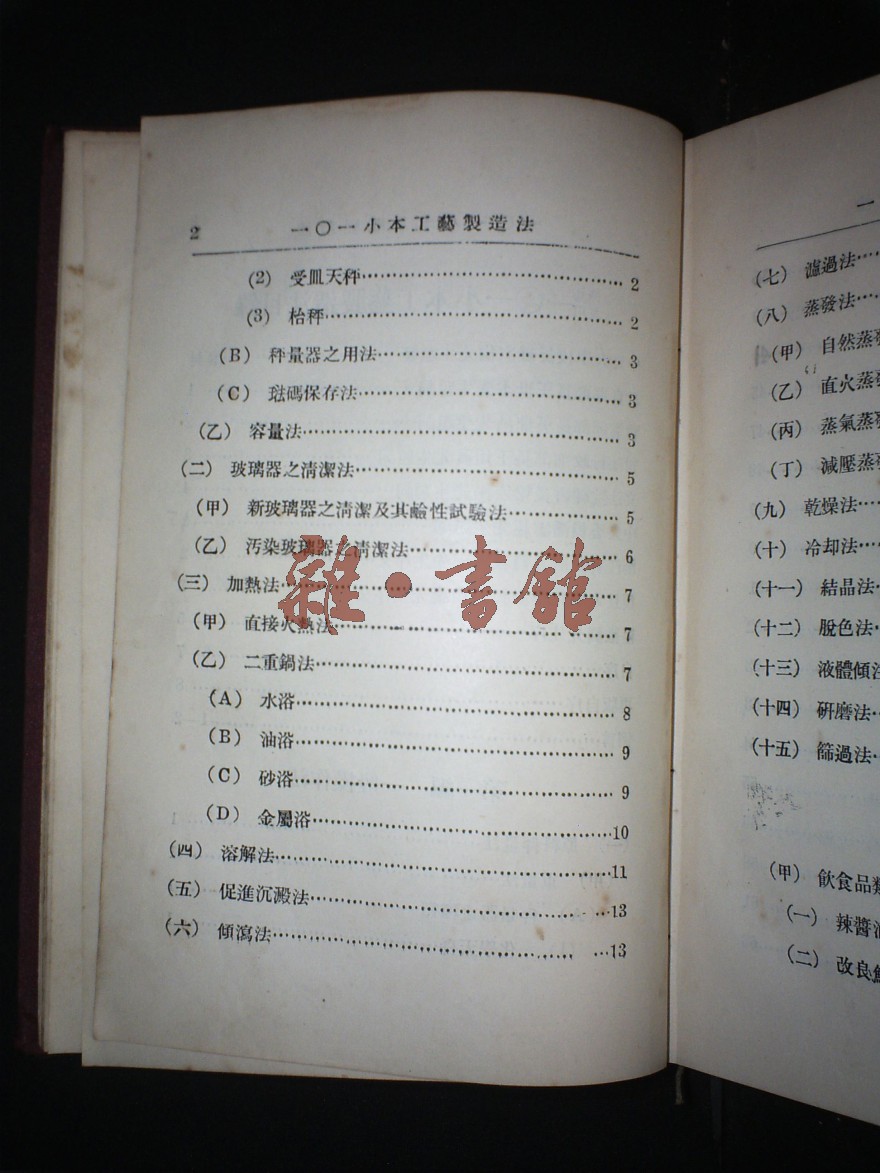 2 一〇一小本工藝製造法
(2) 受皿天秤 2
(3) 枱秤 2
(B) 秤量器之用法 3
(C) 琺碼保存法 3
(乙) 容量法 3
(二) 玻璃器之淸潔法 5
(甲) 新玻璃器之淸潔及其鹼性試驗法 5
(乙) 汚染玻璃器之淸潔法 6
(三) 加熱法 7
(甲) 直接火熱法 7
(乙) 二重鍋法 7
(A) 水浴 8
(B) 油浴 9
(C) 砂浴 9
(D) 金屬浴 10
(四) 溶解法 11
(五) 促進沉澱法 13
(六) 傾瀉法 13
雜·書館
一
(七) 濾過法
(八) 蒸發法
(甲) 自然蒸發
(乙) 直火蒸發
(丙) 蒸氣蒸發
(丁) 減壓蒸發
(九) 乾燥法
(十) 冷却法
(十一) 結晶法
(十二) 脫色法
(十三) 液體傾注
(十四) 硏磨法
(十五) 篩過法
(甲) 飮食品類
(一) 辣醬油
(二) 改良